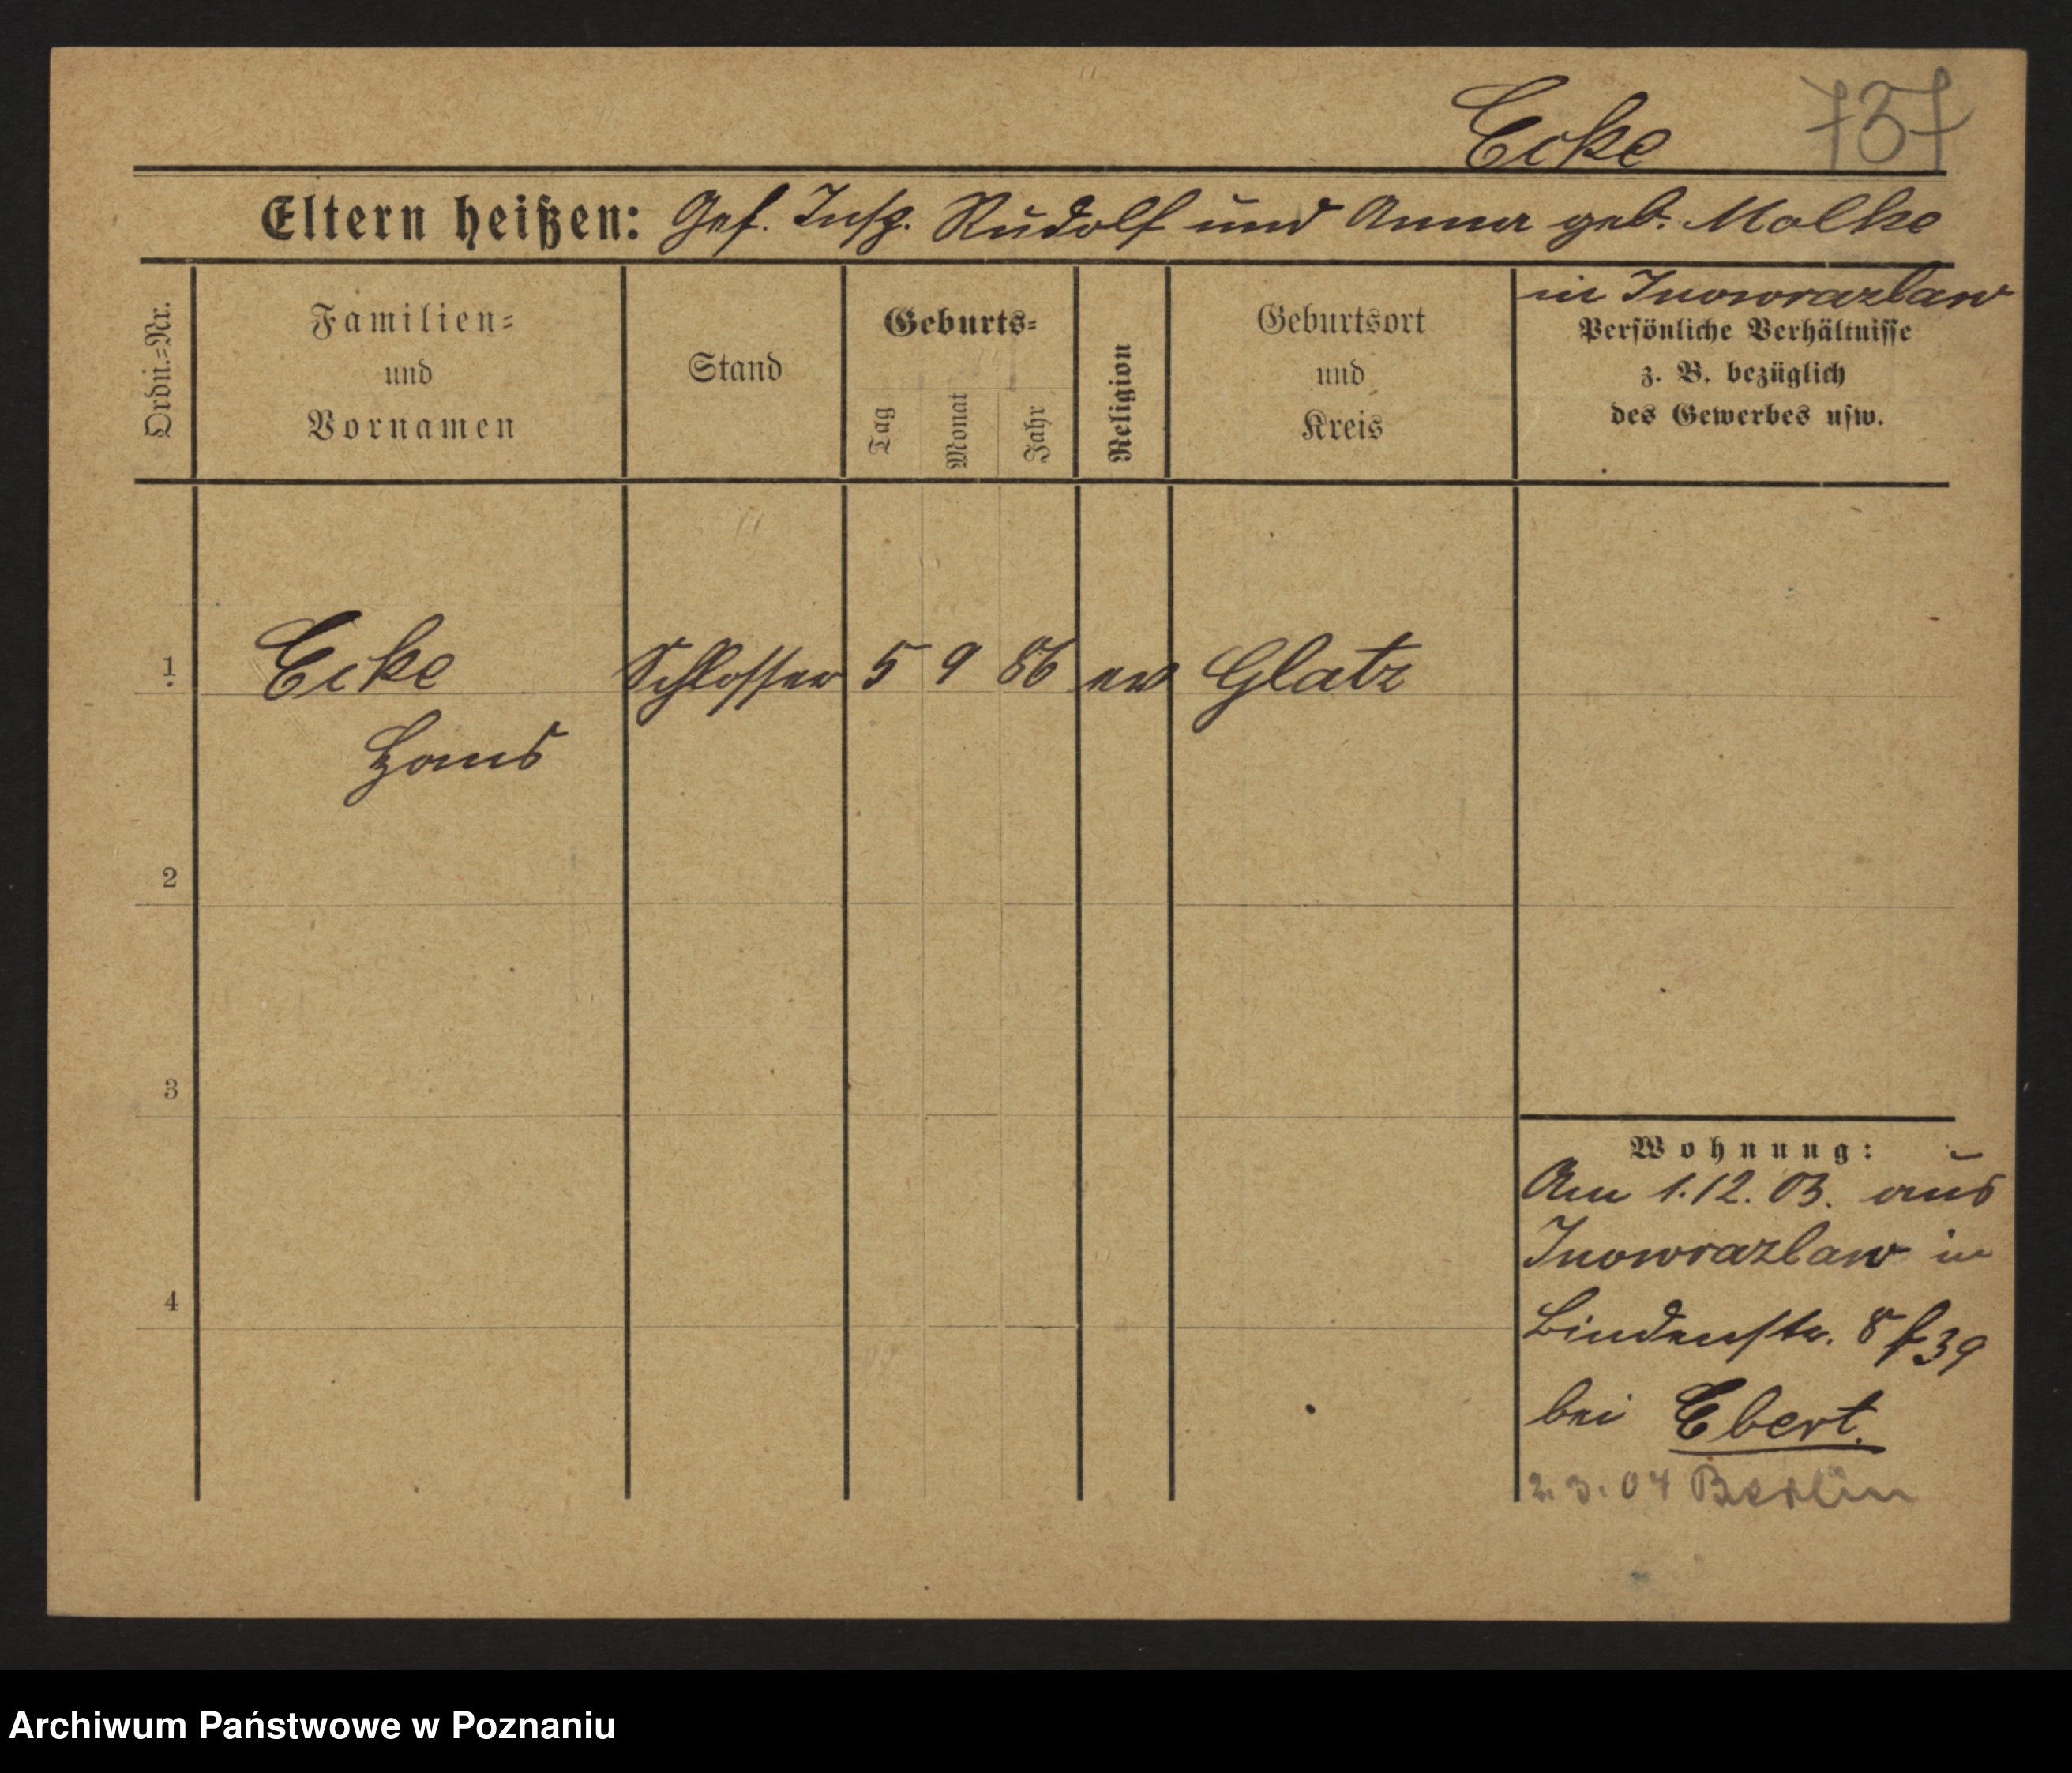 Ecke 737
Eltern heißen: Gef. Insp. Rudolf und Anna geb. Molke
in Inowrazlaw
Ordn.=Nr.
Familien=
und
Vornamen
Stand
Geburts=
Tag
Monat
Jahr
Religion
Geburtsort
und
Kreis
Persönliche Verhältnisse
z. B. bezüglich
des Gewerbes usw.
1 Ecke Schlosser 5 9 86 ev Glatz
Hans
2
3
4
Wohnung:
Am 1.12.03. aus
Inowrazlaw in
Lindenstr. 8 39
bei Ebert.
2.3.04 Berlin
Archiwum Państwowe w Poznaniu